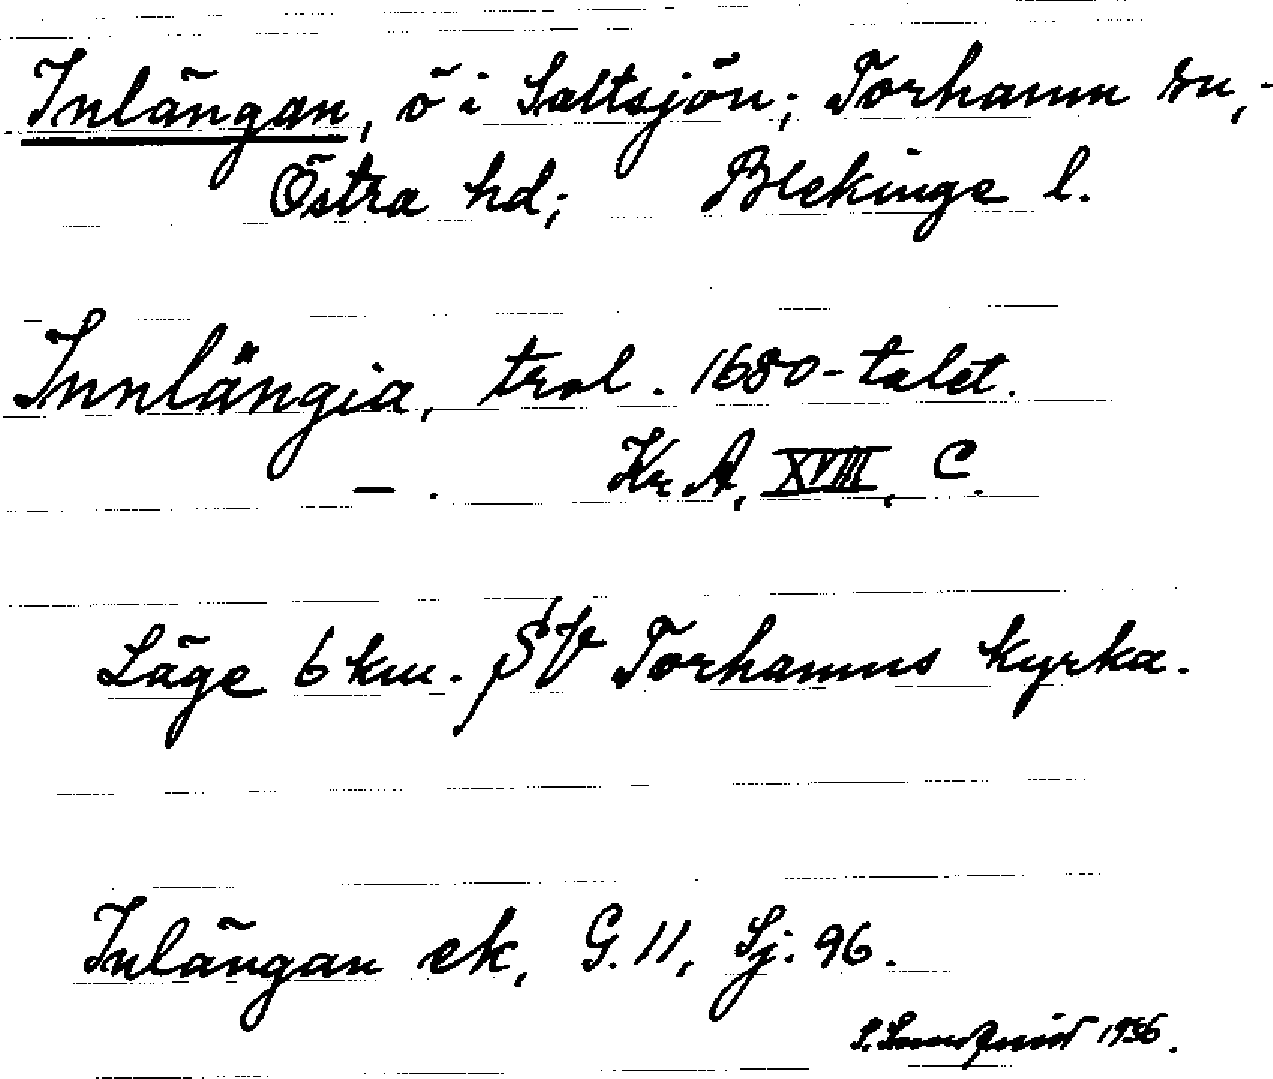 Inlängan, ö i Saltsjön; Torhamn sn,-
Östra hd; Blekinge l.
Innlängia, trol. 1680-talet.
— . Kr. A, XVIII, C.
Läge 6 km. SV Torhamns kyrka.
Inlängan ek, G. 11, Sj. 96.
1936.